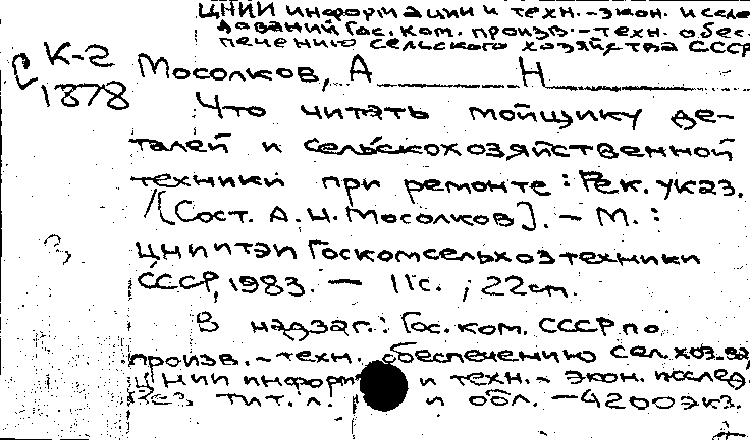 ЦНИИ информации и техн.-экон. иссле
дований Гос. ком. произв.-техн. обес-
печению сельского хозяйства СССР
К-2
1878
Мосолков, А Н
Что читать мойщику де-
талей и сельскохозяйственной
техники при ремонте: Рек. указ.
/[Сост. А.Н. Мосолков]. - М.:
ЦНИИТЭИ Госкомсельхозтехники
СССР, 1983. - 11с. ; 22см.
3
В надзаг.: Гос. ком. СССР по
произв.-техн. обеспечению сел. хоз-ва,
ЦНИИ информ и техн.- экон. исслед
Без тит. л. и обл. - 4200экз.